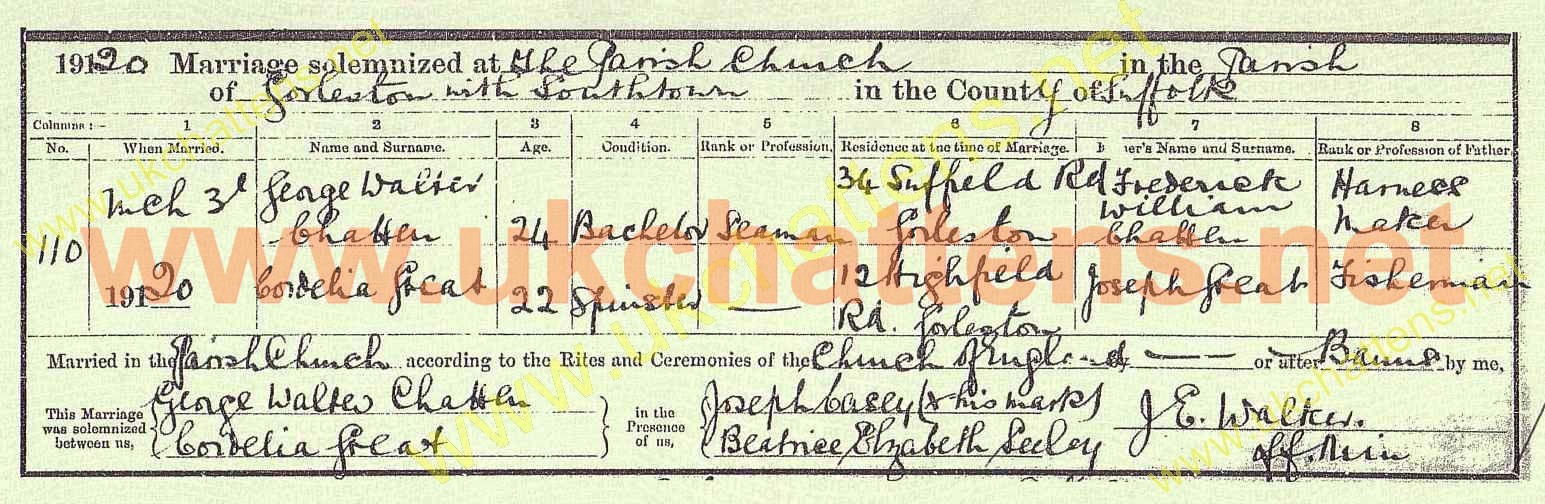 1920 Marriage solemnized at the Parish Church in the Parish
of Gorleston with Southtown in the County of Suffolk
Columns :— 1 2 3 4 5 6 7 8
No. When Married. Name and Surname. Age. Condition. Rank or Profession. Residence at the time of Marriage. Father's Name and Surname. Rank or Profession of Father.
110 Mch 3d 1920
George Walter Chatten 24 Bachelor Seaman 34 Suffield Rd Gorleston Frederick William Chatten Harness Maker
Cordelia Great 22 Spinster — 12 Highfield Rd. Gorleston Joseph Great Fisherman
Married in the Parish Church according to the Rites and Ceremonies of the Church of England — — or after Banns by me,
This Marriage was solemnized between us,
George Walter Chatten
Cordelia Great
in the Presence of us,
Joseph Casey (x his mark)
Beatrice Elizabeth Seeley
J E. Walker.
Off. Min
www.ukchattens.net
www.ukchattens.net
www.ukchattens.net
www.ukchattens.net
www.ukchattens.net